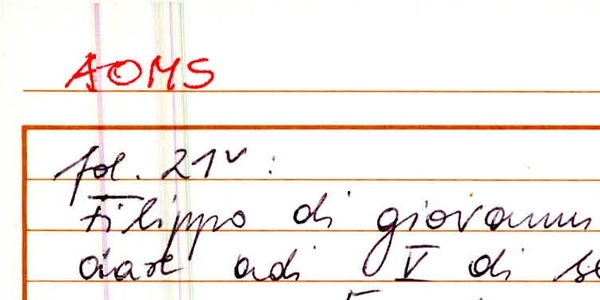 AOMS
fol. 21v :
Filippo di giovanni
dare adi V di se